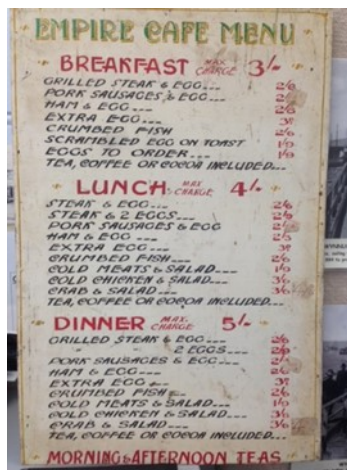 EMPIRE CAFE MENU
BREAKFAST MAX. CHARGE 3/-
GRILLED STEAK & EGG... 2/6
PORK SAUSAGES & EGG... 2/-
HAM & EGG... 2/6
EXTRA EGG... 3D
CRUMBED FISH 2/6
SCRAMBLED EGG ON TOAST 1/9
EGGS TO ORDER... 1/9
TEA, COFFEE OR COCOA INCLUDED...
LUNCH MAX. CHARGE 4/-
STEAK & EGG... 2/6
STEAK & 2 EGGS...
PORK SAUSAGES & EGG
HAM & EGG ...
EXTRA EGG ... 3D
CRUMBED FISH... 2/6
COLD MEATS & SALAD... 1/9
COLD CHICKEN & SALAD... 3/6
CRAB & SALAD... 3/6
TEA, COFFEE OR COCOA INCLUDED...
DINNER MAX. CHARGE 5/-
GRILLED STEAK & EGG... 2/6
" " 2 EGGS...
PORK SAUSAGES & EGG...
HAM & EGG... 2/6
EXTRA EGG 3D
CRUMBED FISH 2/6
COLD MEATS & SALAD... 1/9
COLD CHICKEN & SALAD... 3/6
CRAB & SALAD... 3/6
TEA, COFFEE OR COCOA INCLUDED...
MORNING & AFTERNOON TEAS